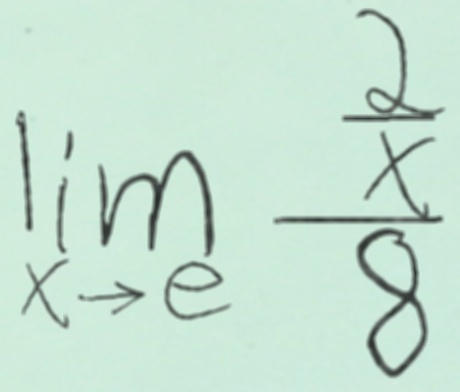 lim_{x→e} \frac{\frac{2}{x}}{8}